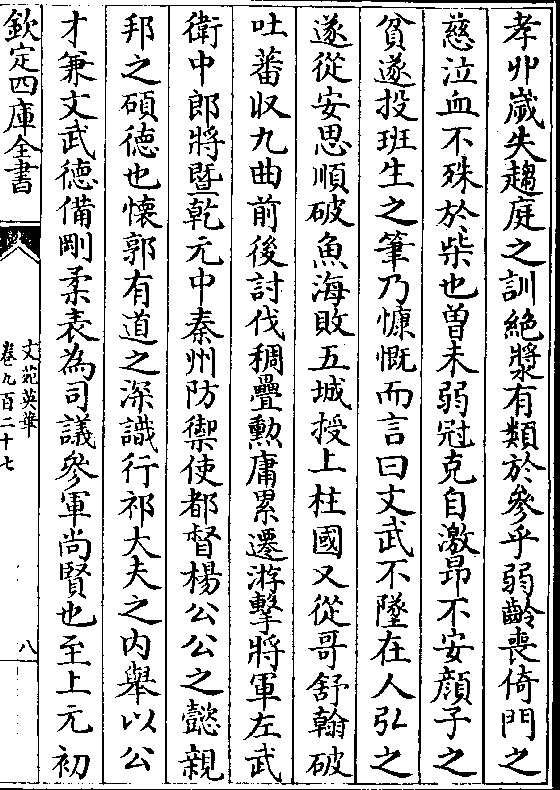 孝丱嵗失趨庭之訓絶漿有類於參乎弱齡喪倚門之
慈泣血不殊於柴也曽未弱冠克自激昻不安顔子之
貧遂投班生之筆乃慷慨而言曰文武不墜在人弘之
遂從安思順破魚海敗五城授上柱國又從哥舒翰破
吐蕃收九曲前後討伐稠疊勲庸累遷游擊將軍左武
衛中郎將暨乾元中秦州防禦使都督楊公公之懿親
邦之碩德也懐郭有道之深識行祁大夫之内舉以公
才兼文武德備剛柔表為司議參軍尚賢也至上元初
欽定四庫全書
文苑英華
卷九百二十七
八